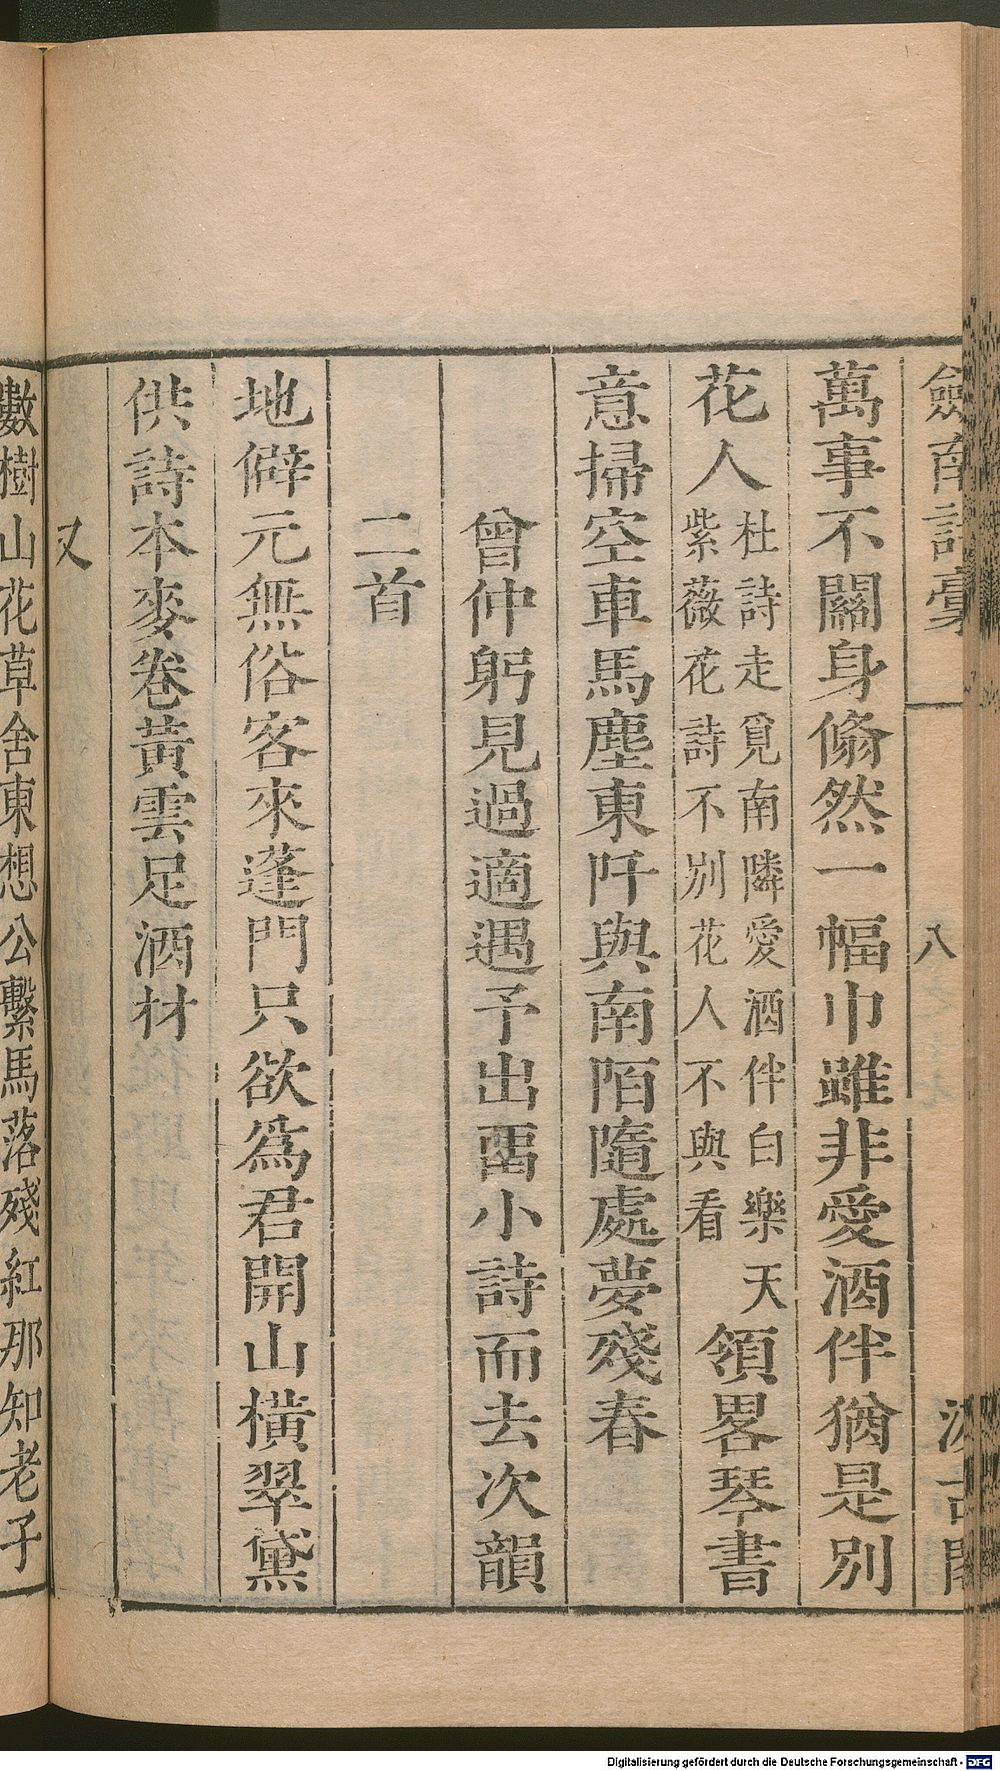 劍南詩稾
八
汲古閣
萬事不關身翛然一幅巾雖非愛酒伴猶是別
花人杜詩走覓南隣愛酒伴白樂天紫薇花詩不別花人不與看領畧琴書
意掃空車馬塵東阡與南陌隨處夢殘春
曾仲躬見過適遇予出畱小詩而去次韻
二首
地僻元無俗客來蓬門只欲爲君開山橫翠黛
供詩本麥卷黃雲足酒材
又
數樹山花草舍東想公繫馬落殘紅那知老子
Digitalisierung gefördert durch die Deutsche Forschungsgemeinschaft - DFG